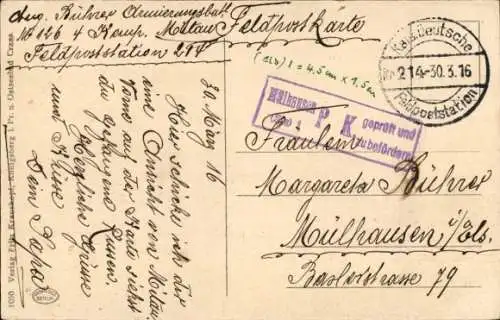 Aug. Bührer Armierungsbatl.
No 126 4 Komp. Mitau
Feldpoststation 214
Feldpostkarte
Kais. Deutsche
214-30.3.16
Feldpoststation
1 = 4,5 cm x 1,5 cm
Mülhausen
P K
geprüft und
zu befördern
30. März 16
Hier schicke ich dir
eine Ansicht von Mitau
Vorne auf der Karte siehst
du gefangene Russen.
Herzliche Grüsse
und Küsse
Dein Papa
Fräulein
Margareta Bührer
Mülhausen i/Els.
Baslerstrasse 79
1020 Verlag Fritz Krauskopf, Königsberg i. Pr. u. Ostseebad Cranz